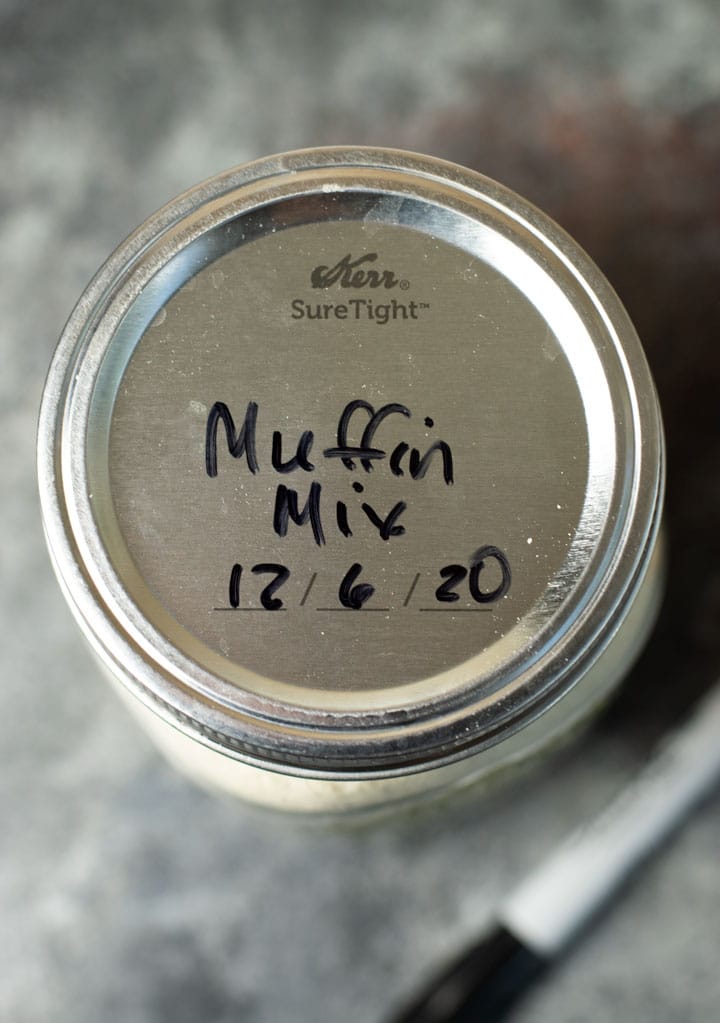 Kerr®
SureTight™
Muffin
Mix
12/6/20